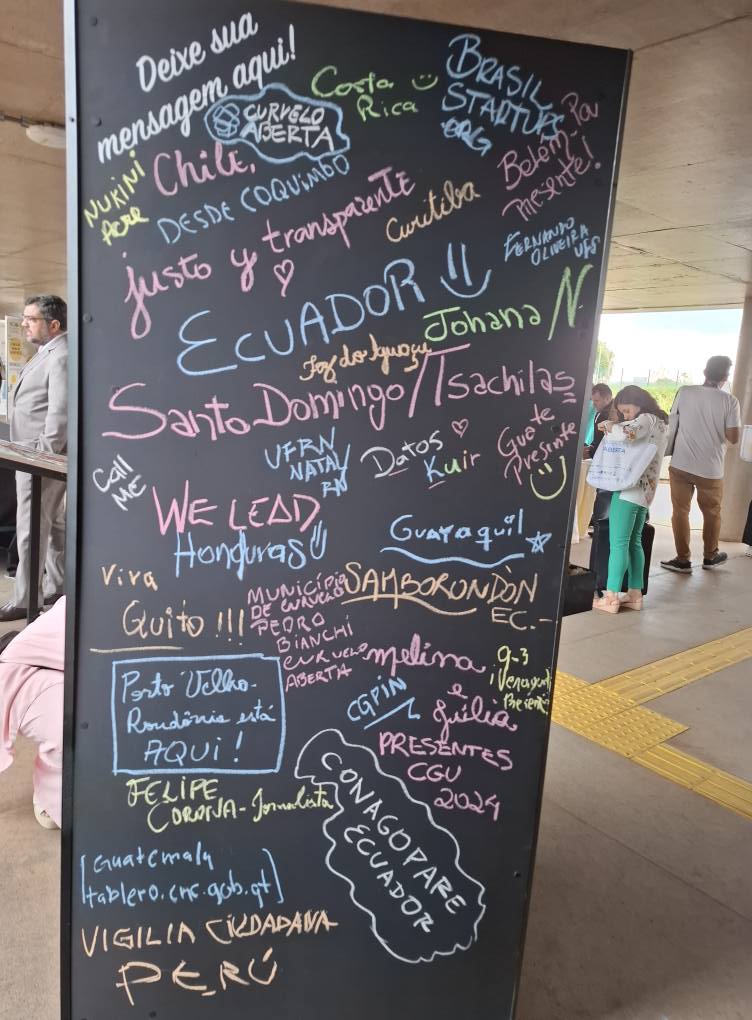 Deixe sua
mensagem aqui!
CURVELO
ABERTA
Costa
Rica
BRASIL
STARTUPS
ORG
NUKINI
Acre
Chile,
DESDE COQUIMBO
Belém-Pa
Presente!
justo y transparente
Curitiba
FERNANDO
OLIVEIRA
UFS
ECUADOR
Johana N.
Foz do Iguaçu
Santo Domingo/Tsachilas
UFRN
NATAL
RN
Datos
Kuir
Guate
Presente
Call
ME
WE LEAD
Honduras
Guayaquil
Viva
Quito !!!
MUNICÍPIO
DE CURVELO
PEDRO
BIANCHI
CURVELO
ABERTA
SAMBORONDÒN
EC.-
melina
e
júlia
PRESENTES
CGU
2024
9-3
Porto Velho-
Rondônia está
AQUI!
CGPIN
FELIPE
CORONA - Jornalista
CONAGOPARE
ECUADOR
[Guatemala
tablero.cnc.gob.gt]
VIGILIA CIUDADANA
PERÚ
ABERTA